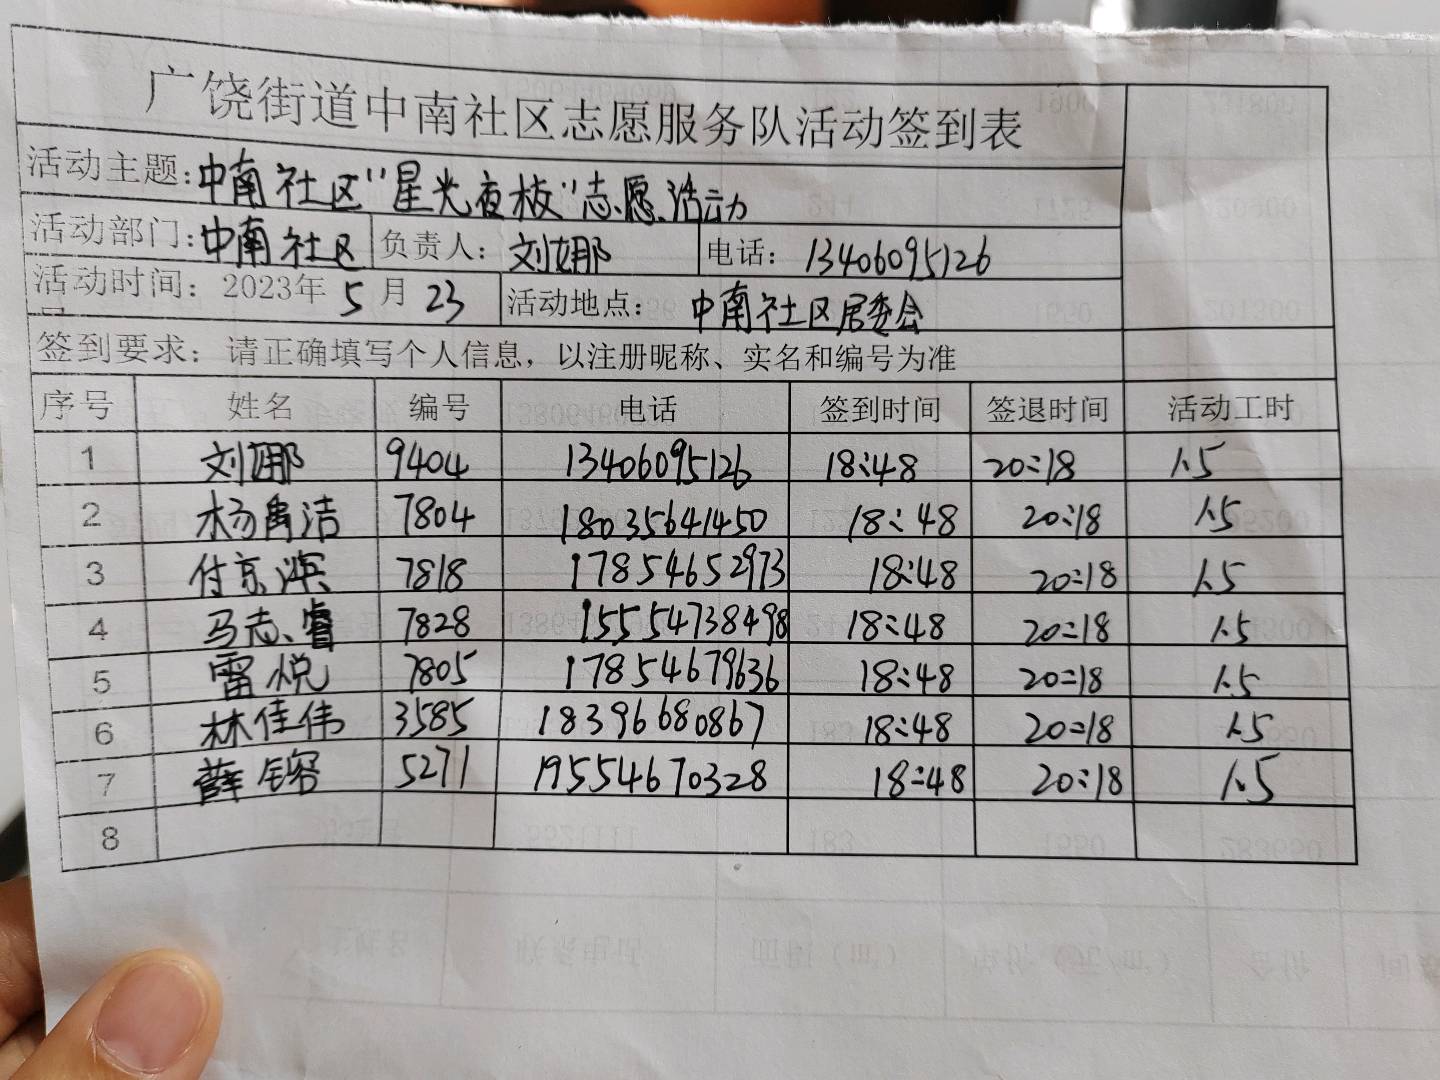 广饶街道中南社区志愿服务队活动签到表
活动主题:中南社区"星光夜校"志愿活动
活动部门:中南社区 负责人: 刘娜 电话: 13406095126
活动时间: 2023年 5 月 23 活动地点: 中南社区居委会
签到要求: 请正确填写个人信息，以注册昵称、实名和编号为准
序号 姓名 编号 电话 签到时间 签退时间 活动工时
1 刘娜 9404 13406095126 18:48 20:18 1.5
2 杨禹洁 7804 18035641450 18:48 20:18 1.5
3 付京滨 7818 17854652973 18:48 20:18 1.5
4 马志睿 7828 15554738498 18:48 20:18 1.5
5 雷悦 7805 17854679636 18:48 20:18 1.5
6 林佳伟 3585 18396680867 18:48 20:18 1.5
7 薛镕 5271 19554670328 18:48 20:18 1.5
8